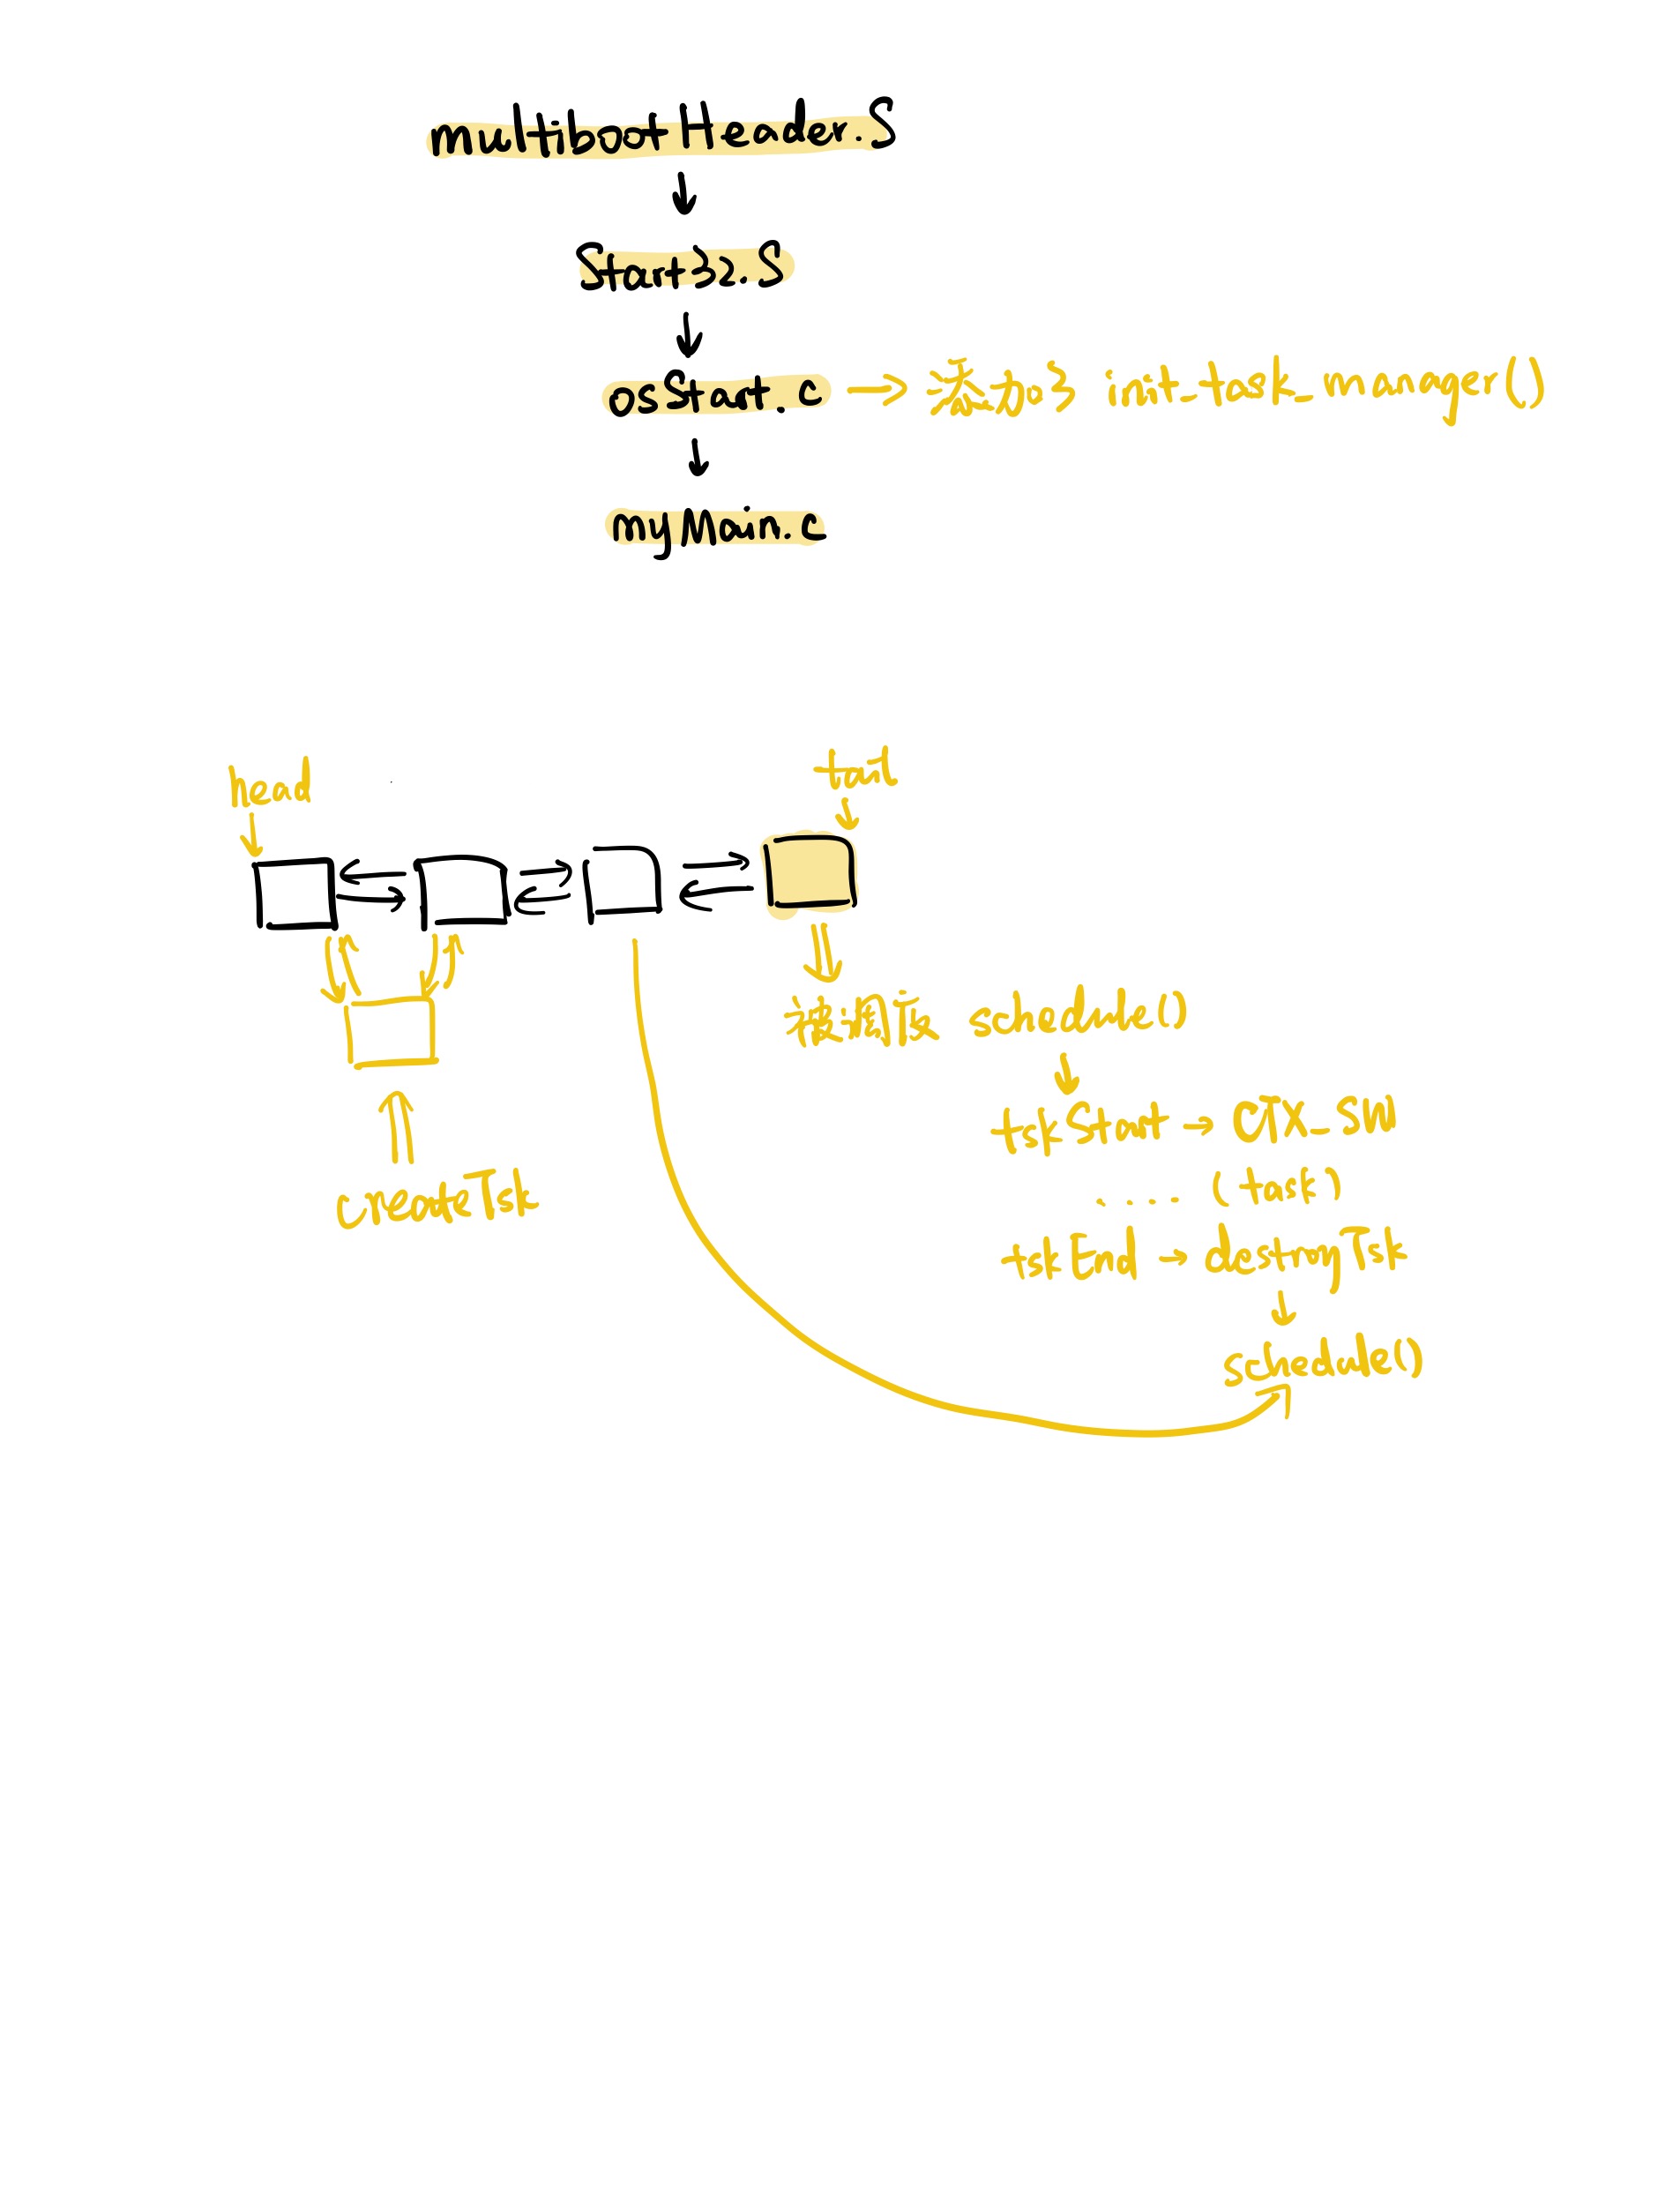 multibootHeader.S
Start32.S
osStart.c → 添加了 init_task_manager()
myMain.c
head
tail
被调度 schedule()
tskStart → CTX_SW
.... (task)
createTsk
tskEnd → destroyTsk
schedule()